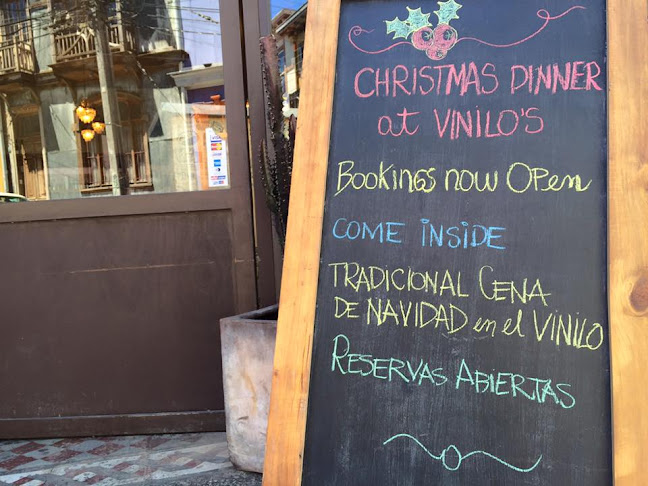 CHRISTMAS DINNER
at VINILO'S
Bookings now Open
COME INSIDE
TRADICIONAL CENA
DE NAVIDAD en el VINILO
RESERVAS ABIERTAS